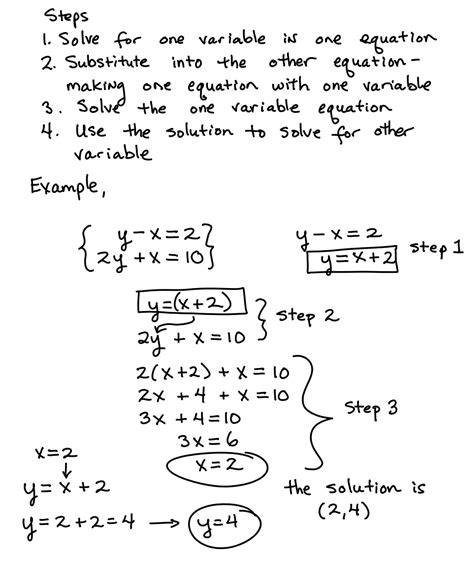 Steps
1. Solve for one variable in one equation
2. Substitute into the other equation -
making one equation with one variable
3. Solve the one variable equation
4. Use the solution to solve for other
variable
Example,
{ y - x = 2 }
{ 2y + x = 10 }
y - x = 2
y = x + 2 step 1
y = (x + 2)
2y + x = 10
} step 2
2(x+2) + x = 10
2x + 4 + x = 10
3x + 4 = 10
3x = 6
x = 2
} Step 3
x = 2
↓
y = x + 2
y = 2 + 2 = 4 → y = 4
the solution is
(2,4)